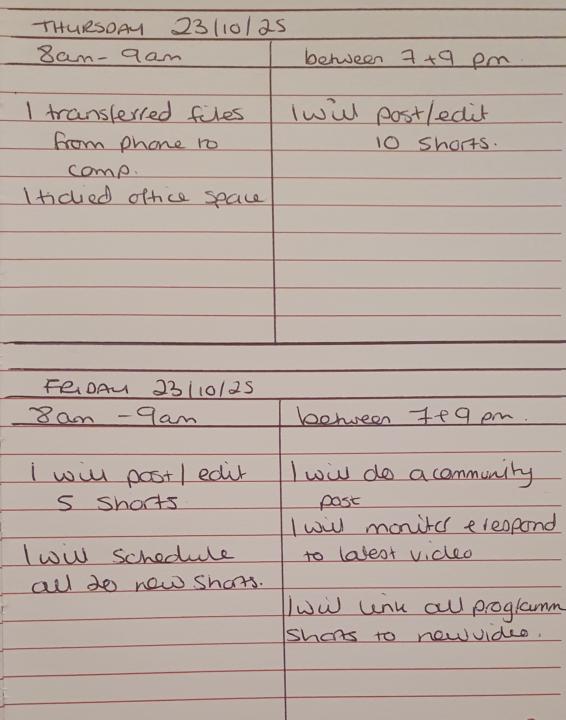 THURSDAY 23/10/25
8am - 9am
between 7 + 9 pm.
I transferred files
from phone to
comp.
I tidied office space
I will post/edit
10 shorts.
FRIDAY 23/10/25
8am - 9am
between 7 + 9 pm.
I will post/edit
5 shorts
I will schedule
all 20 new shorts.
I will do a community
post
I will monitor & respond
to latest video
I will link all programm
shorts to new video.